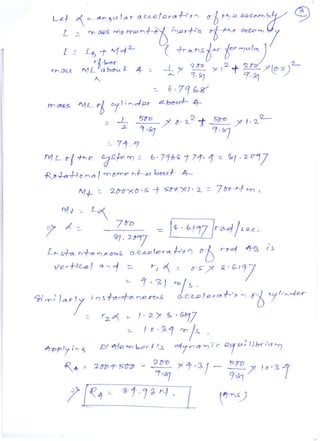 3
Let α = angular acceleration of the assembly
I = mass moment of inertia of the assembly
I = IG + Md² (transfer formula)
mass MI of bar about A = 1/12 × 200/9.81 × 1² + 200/9.81 × (0.5)²
= 6.7968
mass MI of cylinder about A
= 1/2 500/9.81 × 0.2² + 500/9.81 × 1.2²
= 74.4
MI of the system = 6.7968 + 74.4 = 81.2097
Rotational moment about A
Mt = 200×0.5 + 500×1.2 = 700 Nm,
Mt = Iα
α = 700/81.2097 = 8.6197 rad/sec.
Instantaneous acceleration of rod AB is
vertical and = r₁ α = 0.5 × 8.6197
= 4.31 m/s.
Similarly instantaneous acceleration of cylinder
= r₂α = 1.2 × 8.6197
= 10.34 m/s.
Applying D'Alembert's dynamic equilibrium
RA = 200+500 - 200/9.81 × 4.31 - 500/9.81 × 10.34
⇒ RA = 84.93 N. (Ans)